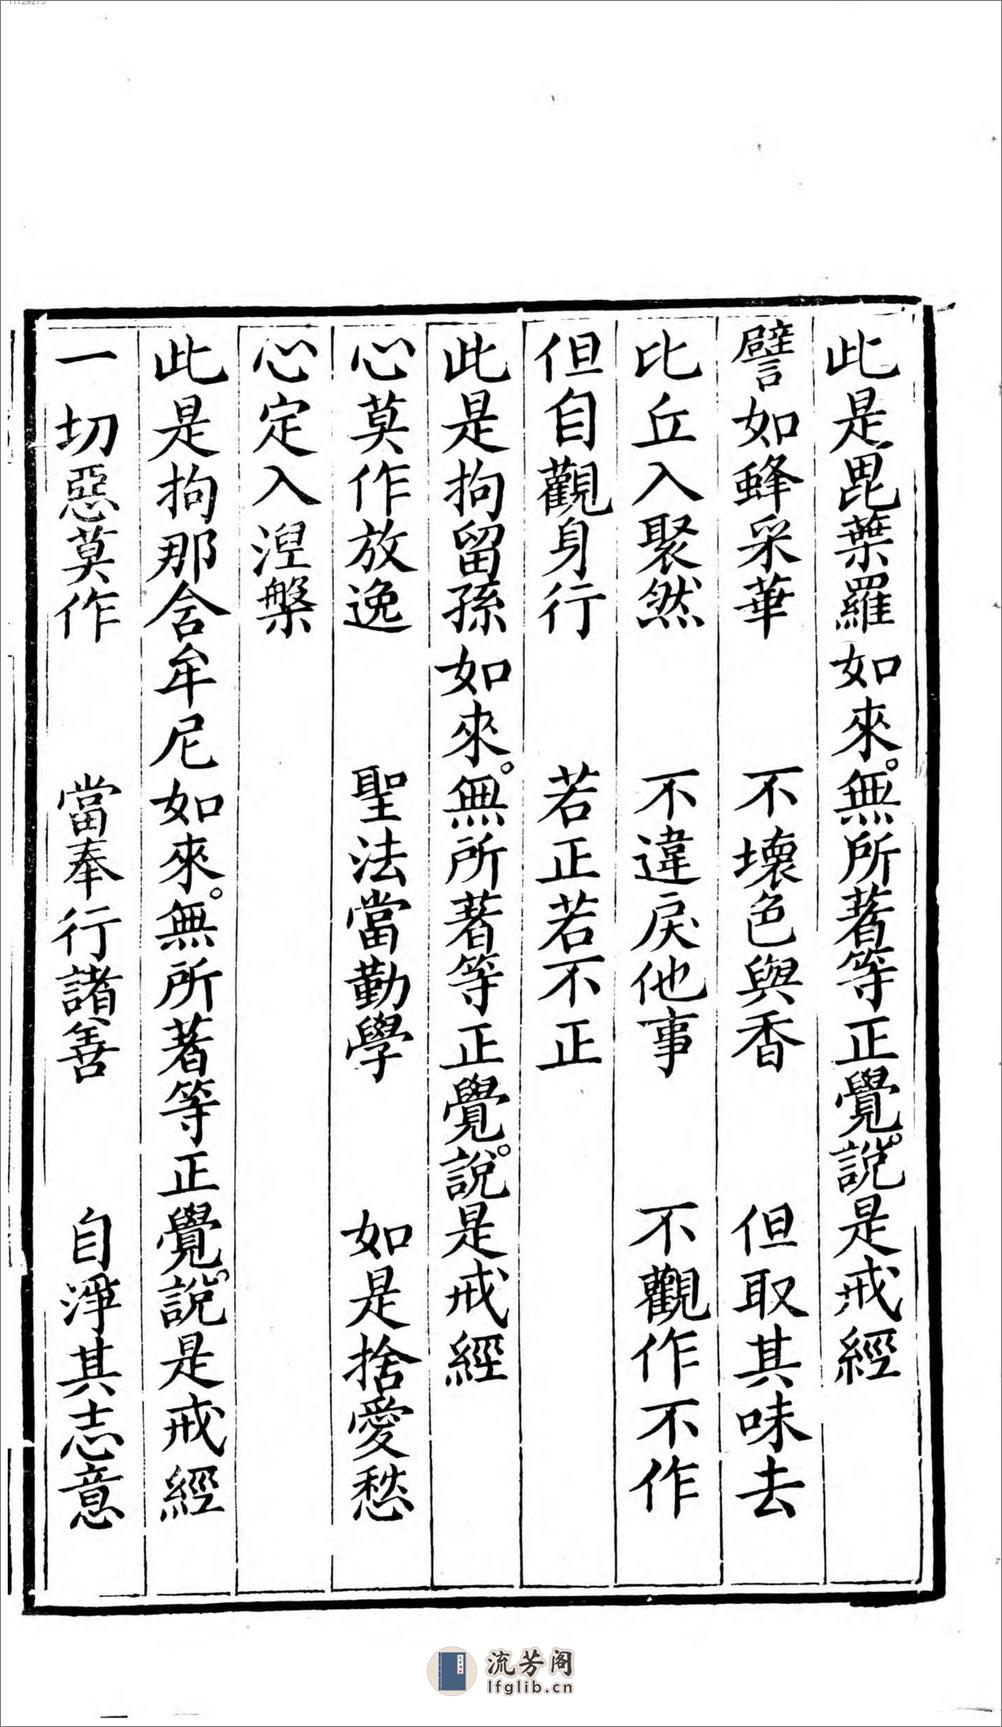 此是毘葉羅如來。無所著等正覺。說是戒經
譬如蜂采華　不壞色與香　但取其味去
比丘入聚然　不違戾他事　不觀作不作
但自觀身行　若正若不正
此是拘留孫如來。無所著等正覺。說是戒經
心莫作放逸　聖法當勤學　如是捨愛愁
心定入涅槃
此是拘那含牟尼如來。無所著等正覺。說是戒經
一切惡莫作　當奉行諸善　自淨其志意
流芳阁
lfglib.cn